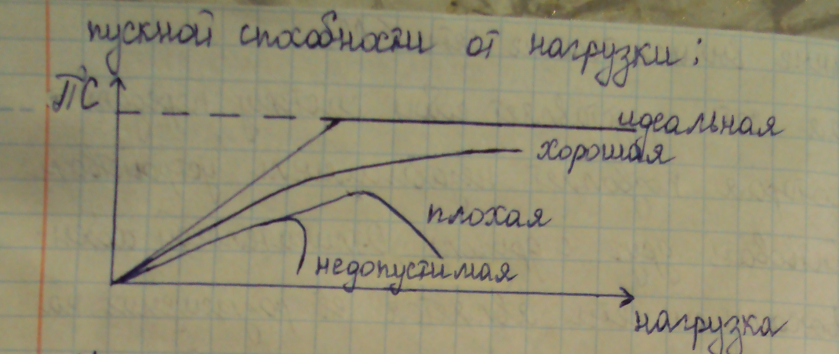 пускной способности от нагрузки:
ПС
идеальная
хорошая
плохая
недопустимая
нагрузка